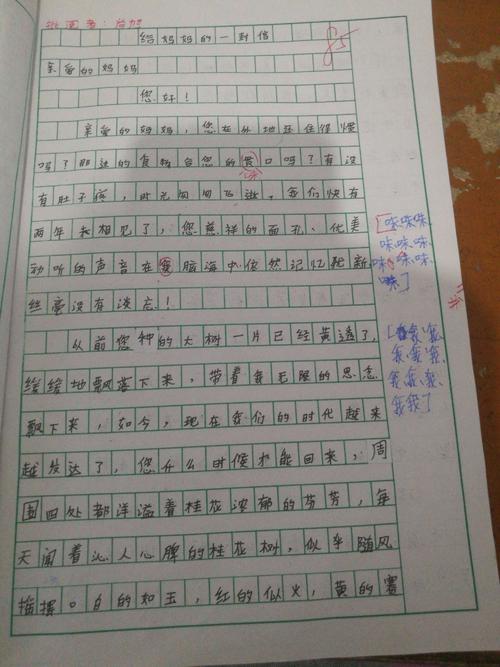 批阅者：
给妈妈的一封信
85
亲爱的妈妈
您好！
亲爱的妈妈，您在外地还住得惯
吗？那边的食物合您的胃口吗？有没
有肚子疼，时光匆匆飞逝，我们快有
两年未相见了，您慈祥的面孔、优美
动听的声音在我脑海中依然记忆犹新
丝毫没有淡忘！
从前您种的大树一片已经黄透了，
缓缓地飘落下来，带着我无限的思念
飘下来，如今，现在我们的时代越来
越发达了，您什么时候才能回来，周
围四处都洋溢着桂花浓郁的芬芳，每
天闻着沁人心脾的桂花树，似乎随风
指挥。白的如玉，红的似火，黄的赛
味味味
味味味
味味味
味
我我我
我我我
我我我
我我了